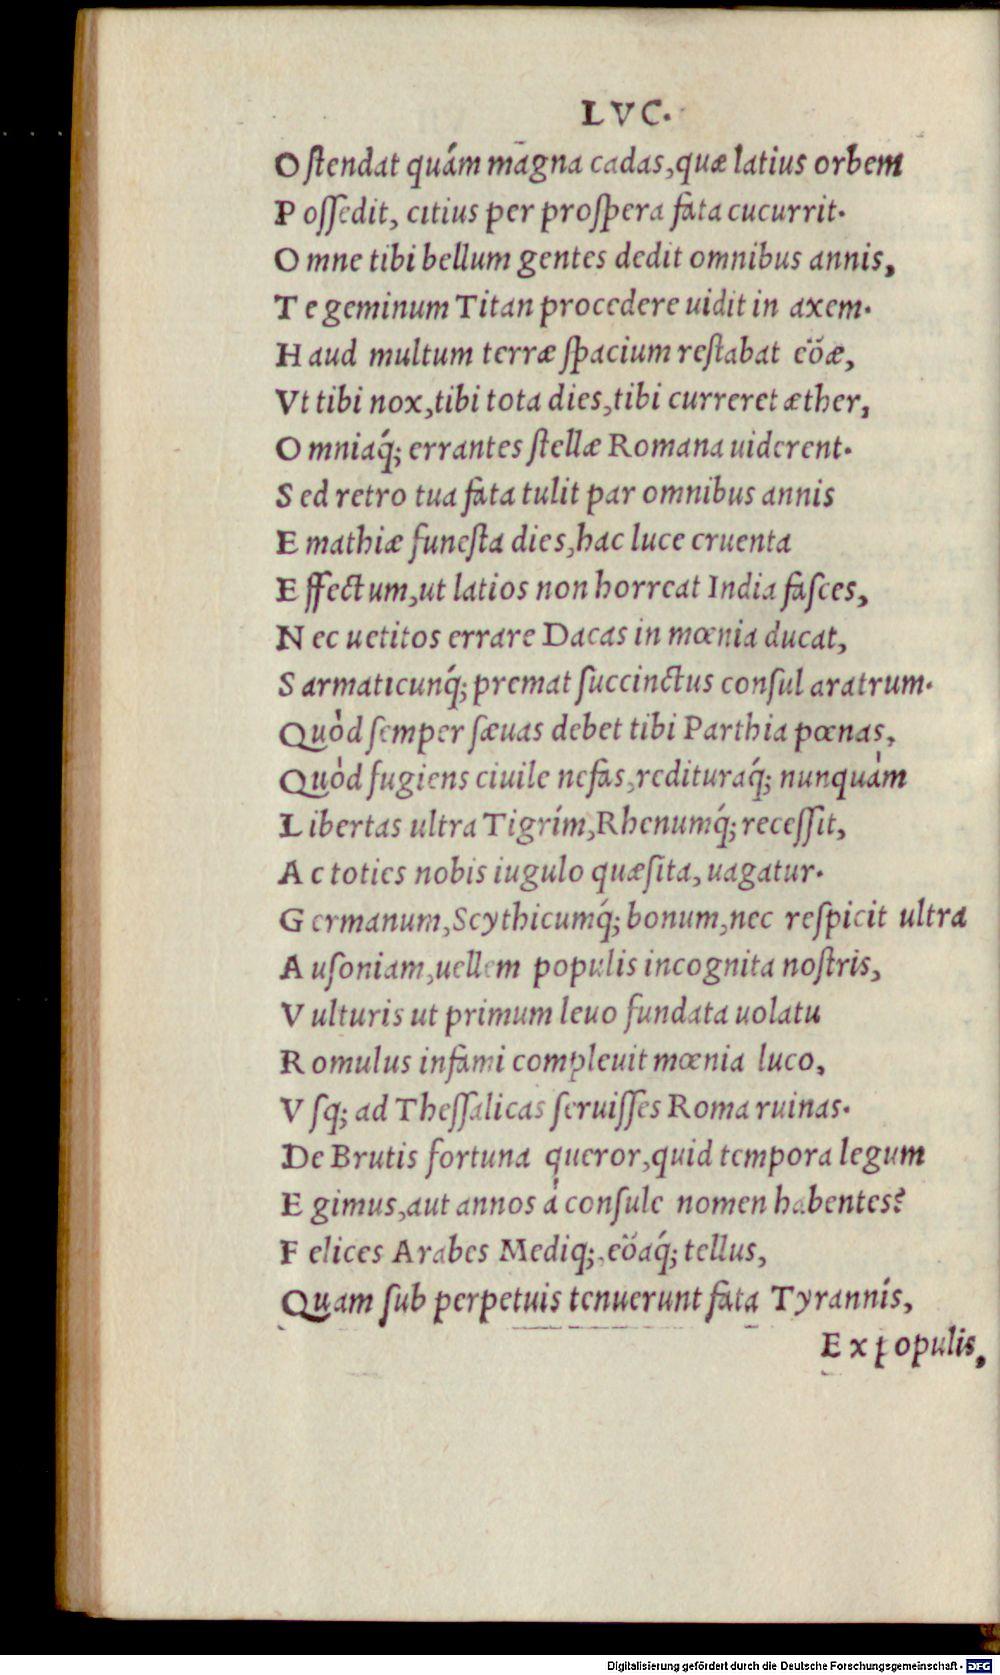 LVC.
Ostendat quám magna cadas, quæ latius orbem
Possedit, citius per prospera fata cucurrit.
Omne tibi bellum gentes dedit omnibus annis,
Te geminum Titan procedere uidit in axem.
Haud multum terræ spacium restabat eöæ,
Vt tibi nox, tibi tota dies, tibi curreret æther,
Omniaq́; errantes stellæ Romana uiderent.
Sed retro tua fata tulit par omnibus annis
Emathiæ funesta dies, hac luce cruenta
Effectum, ut latios non horreat India fasces,
Nec uetitos errare Dacas in mœnia ducat,
Sarmaticunq́; premat succinctus consul aratrum.
Quòd semper sæuas debet tibi Parthia pœnas,
Quòd fugiens ciuile nefas, redituraq́; nunquàm
Libertas ultra Tigrím, Rhenumq́; recessit,
Ac toties nobis iugulo quæsita, uagatur.
Germanum, Scythicumq́; bonum, nec respicit ultra
Ausoniam, uellem populis incognita nostris,
Vulturis ut primum leuo fundata uolatu
Romulus infami compleuit mœnia luco,
Vsq; ad Thessalicas seruisses Roma ruinas.
De Brutis fortuna queror, quid tempora legum
Egimus, aut annos à consule nomen habentes?
Felices Arabes Mediq;, eöaq́; tellus,
Quam sub perpetuis tenuerunt fata Tyrannís,
Ex populis,
Digitalisierung gefördert durch die Deutsche Forschungsgemeinschaft - DFG